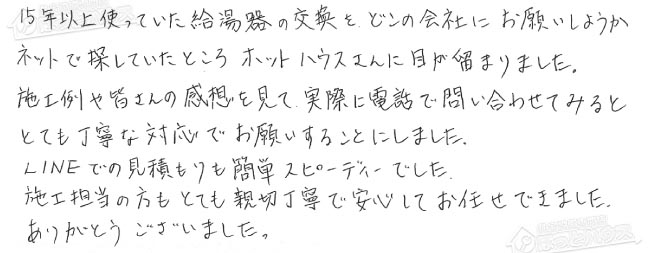 15年以上使っていた給湯器の交換を、どこの会社に お願いしようか
ネットで探していたところ ホットハウスさんに目が留まりました。
施工例や皆さんの感想を見て、実際に電話で問い合わせてみると
とても丁寧な対応で お願いすることにしました。
LINEでの見積もりも簡単スピーディーでした.
施工担当の方も とても親切丁寧で安心してお任せできました.
ありがとうございました。